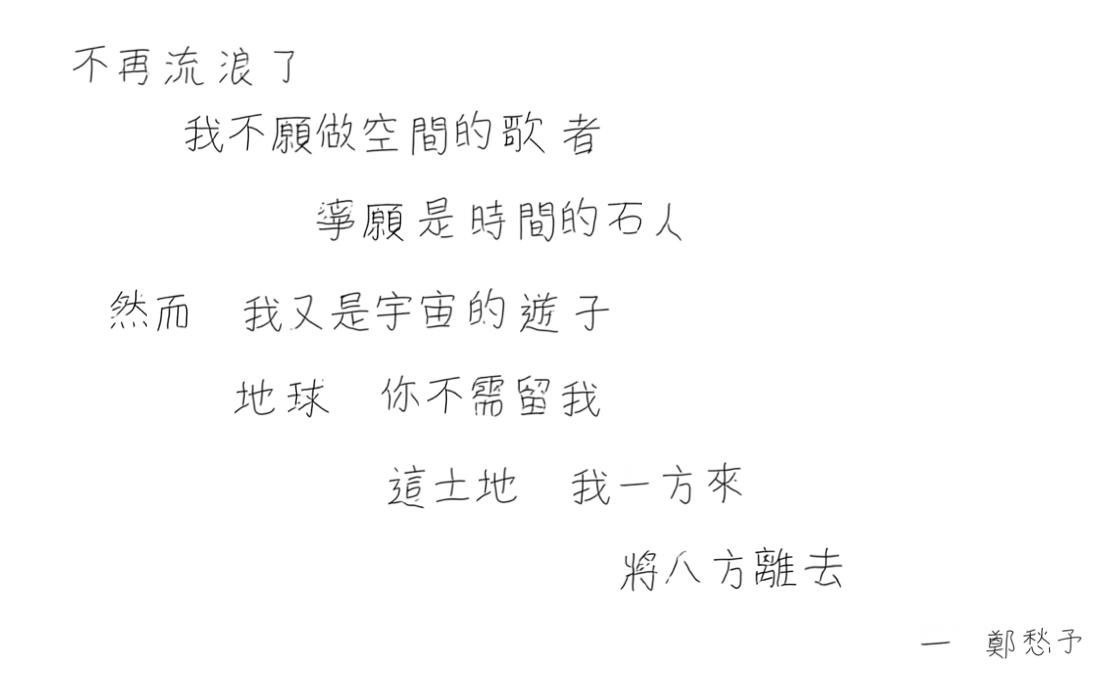 不再流浪了
我不願做空間的歌者
寧願是時間的石人
然而　我又是宇宙的遊子
地球　你不需留我
這土地　我一方來
將八方離去
一　鄭愁予